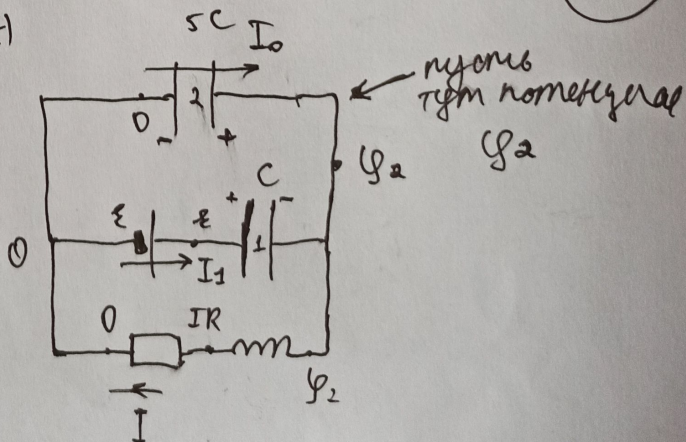 5C
I₀
пусть
тут потенциал
φ₂
0
2
-
+
φ₂
C
ε
ε
+
-
1
0
I₁
0
IR
φ₂
I